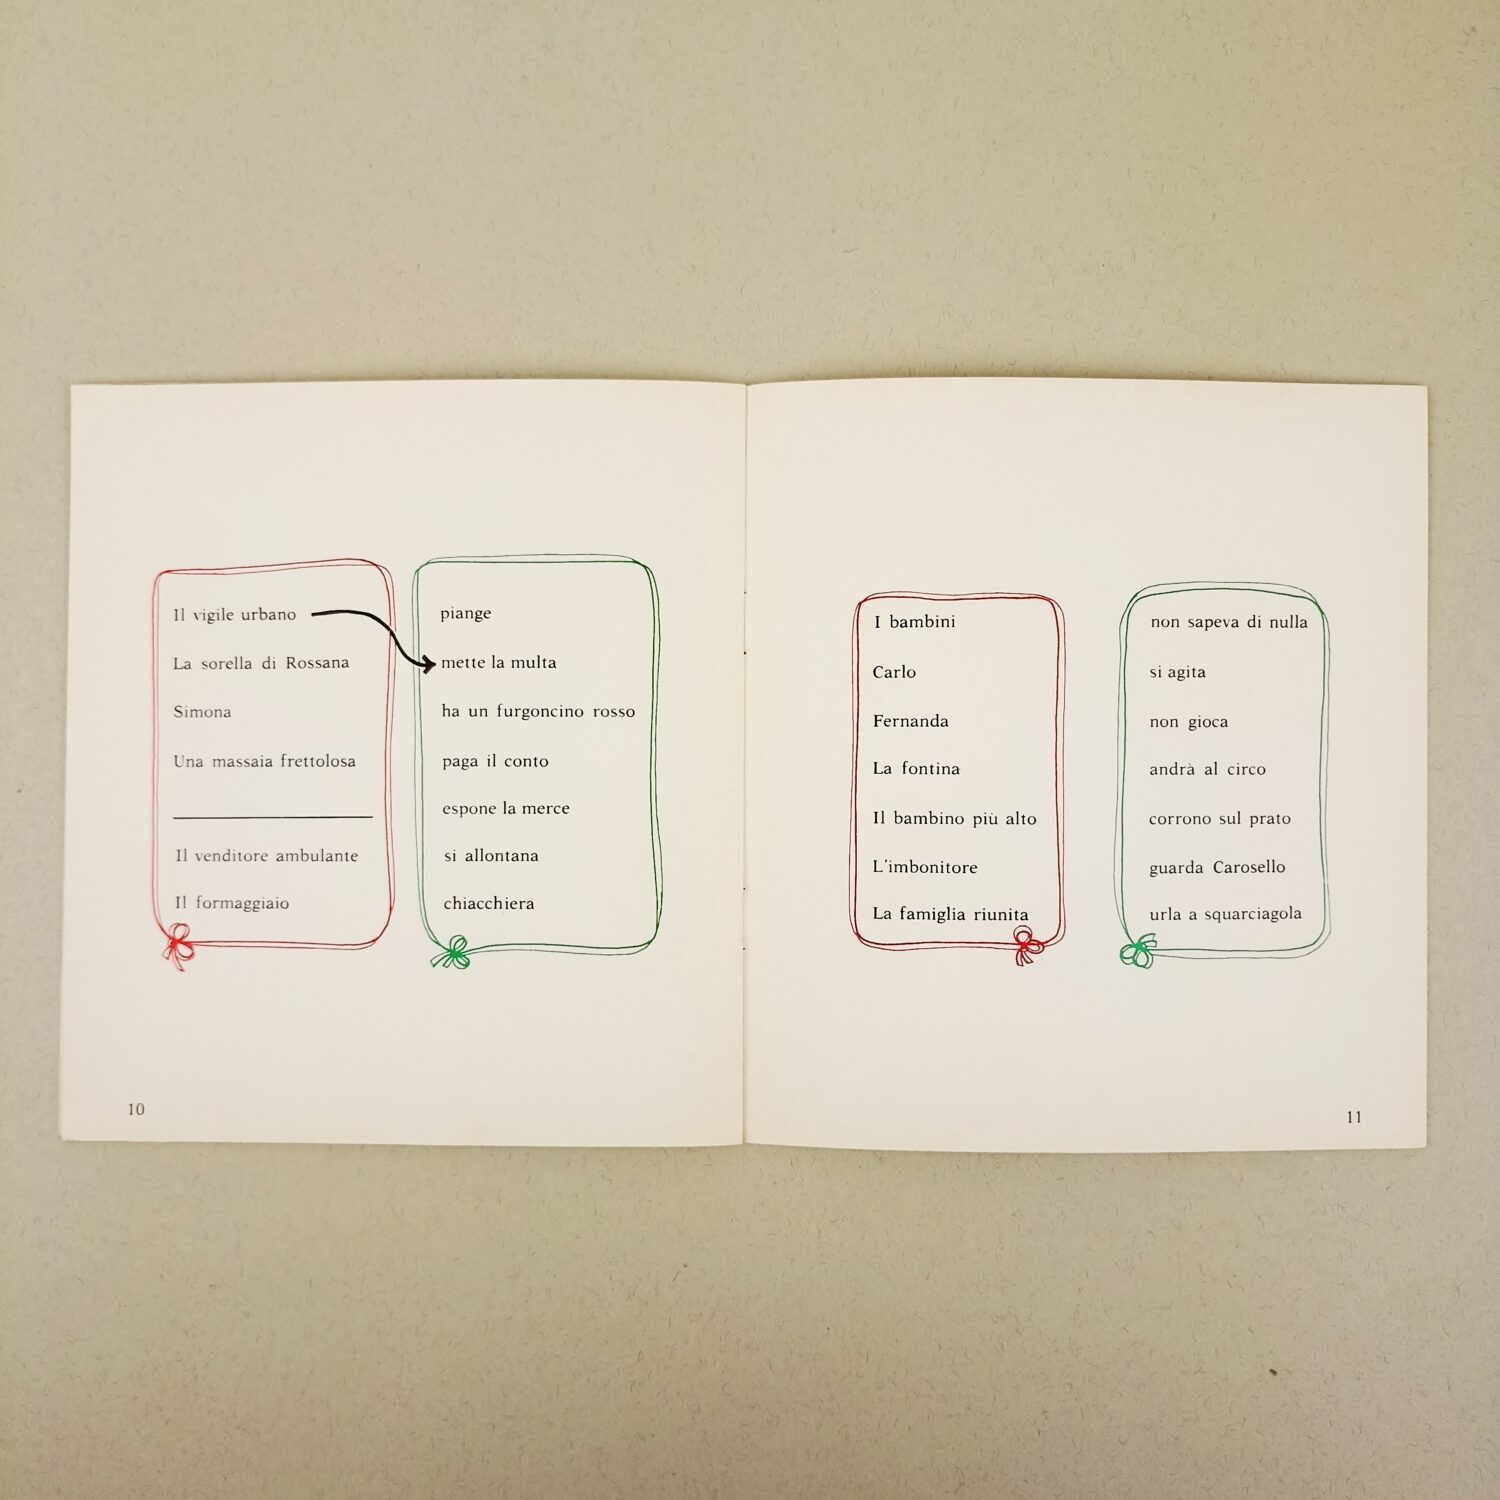 Il vigile urbano
La sorella di Rossana
Simona
Una massaia frettolosa
Il venditore ambulante
Il formaggiaio
piange
mette la multa
ha un furgoncino rosso
paga il conto
espone la merce
si allontana
chiacchiera
10
I bambini
Carlo
Fernanda
La fontina
Il bambino più alto
L'imbonitore
La famiglia riunita
non sapeva di nulla
si agita
non gioca
andrà al circo
corrono sul prato
guarda Carosello
urla a squarciagola
11